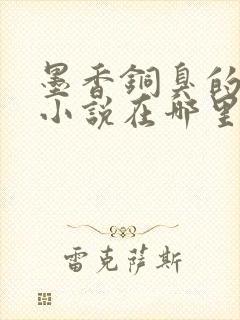 墨香銅臭的
小説在哪里
雷克萨斯